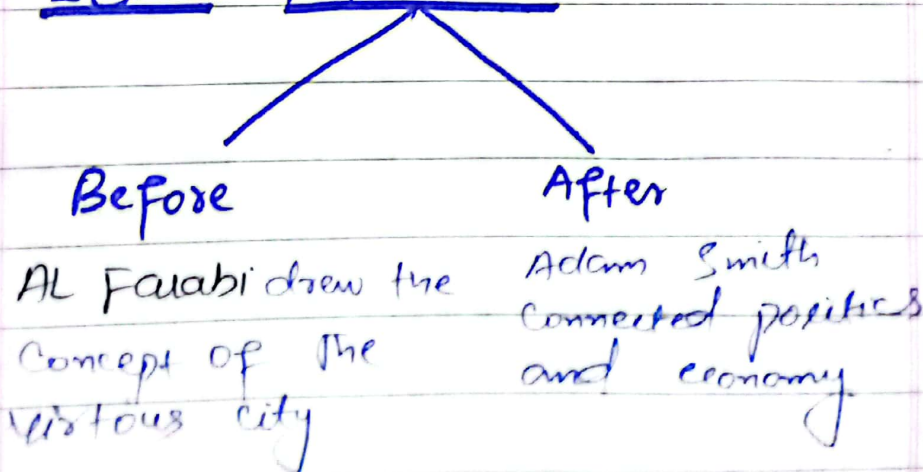 Before
After
AL Farabi drew the
Concept of the
virtous city
Adam Smith
Connected politics
and economy